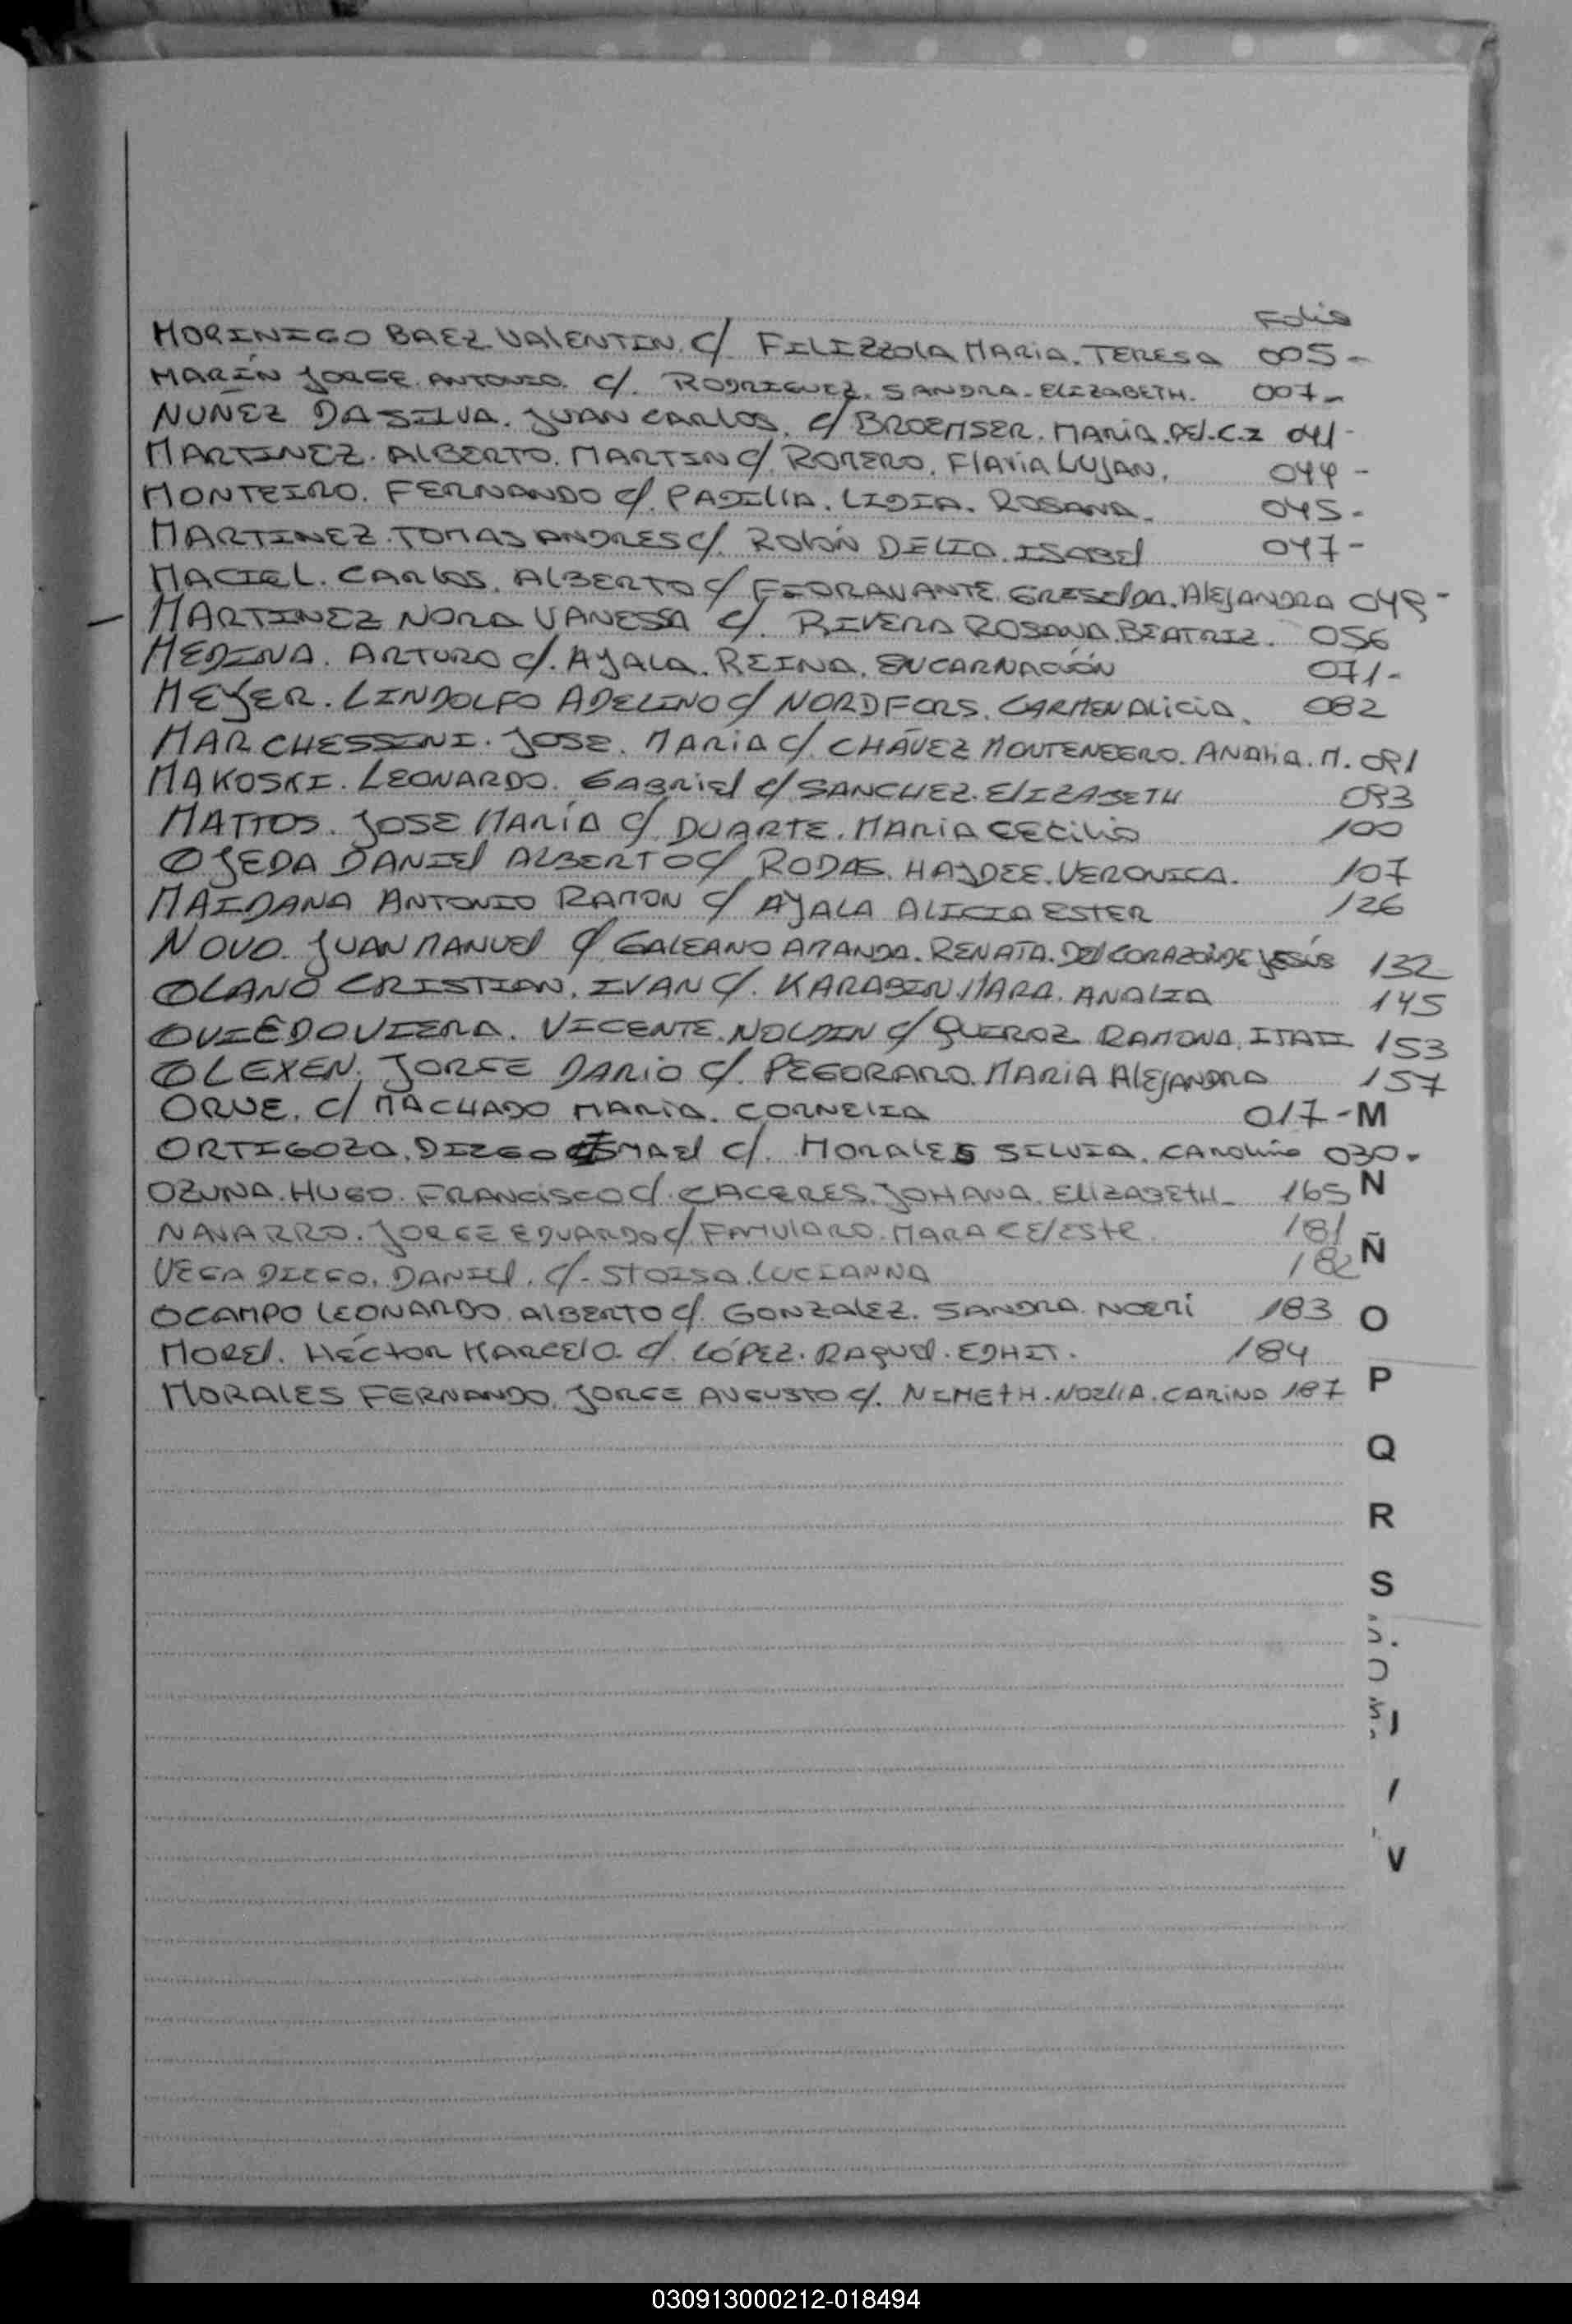 Folio
MORINIGO BAEZ VALENTIN. C/ FILIZZOLA MARIA. TERESA 005-
MARÍN JORGE. ANTONIO. C/. RODRIGUEZ. SANDRA. ELIZABETH. 007-
NUÑEZ DA SILVA. JUAN CARLOS. C/ BROEMSER. MARÍA. DEL. C. Z 041-
MARTINEZ. ALBERTO. MARTIN C/. ROMERO. FLAVIA LUJAN. 044-
MONTEIRO. FERNANDO C/. PADILLA. LIDIA. ROSANA. 045-
MARTINEZ. TOMAS ANDRES C/. ROLÓN DELIA. ISABEL 047-
MACIEL. CARLOS. ALBERTO C/ FIORAVANTE. GRISELDA. ALEJANDRA 049-
MARTINEZ NORA VANESSA C/. RIVERA ROSANA. BEATRIZ. 056
MEDINA. ARTURO C/. AYALA. REINA. ENCARNACIÓN 071-
MEYER. LINDOLFO ADELINO C/ NORDFORS. CARMEN ALICIA. 082
MARCHESSINI. JOSE. MARÍA C/. CHÁVEZ MONTENEGRO. ANALIA. M. 091
MAKOSKI. LEONARDO. GABRIEL C/ SANCHEZ. ELIZABETH 093
MATTOS. JOSE MARÍA C/ DUARTE. MARIA CECILIA 100
OJEDA DANIEL ALBERTO C/ RODAS. HAYDEE. VERONICA. 107
MAIDANA ANTONIO RAMON C/ AYALA ALICIA ESTER 126
NOVO. JUAN MANUEL C/ GALEANO AMANDA. RENATA. DEL CORAZÓN DE JESÚS 132
OLANO CRISTIAN. IVAN C/. KARABIN MARA. ANALIA 145
OVIEDO VIERA. VICENTE. NOLDIN C/ QUEROZ RAMONA. ITATI 153
OLEXEN. JORGE DARIO C/. PEGORARO. MARIA ALEJANDRA 157
ORUE. C/ MACHADO MARÍA. CORNELIA 017-M
ORTIGOZA. DIEGO ISMAEL C/. MORALES SILVIA. CAROLINA 030.
OZUNA. HUGO. FRANCISCO C/. CACERES. JOHANA. ELIZABETH 165 N
NAVARRO. JORGE EDUARDO C/. FAMULARO. MARA CELESTE. 181
VEGA DIEGO. DANIEL. C/- STOISA. LUCIANNA 182 Ñ
OCAMPO LEONARDO. ALBERTO C/. GONZALEZ. SANDRA NOEMÍ 183 O
MOREL. HÉCTOR MARCELO. C/. LÓPEZ. RAQUEL. EDHIT. 184
MORALES FERNANDO. JORGE AUGUSTO C/. NEMETH. NOELIA. CARINA 187 P
Q
R
S
V
030913000212-018494